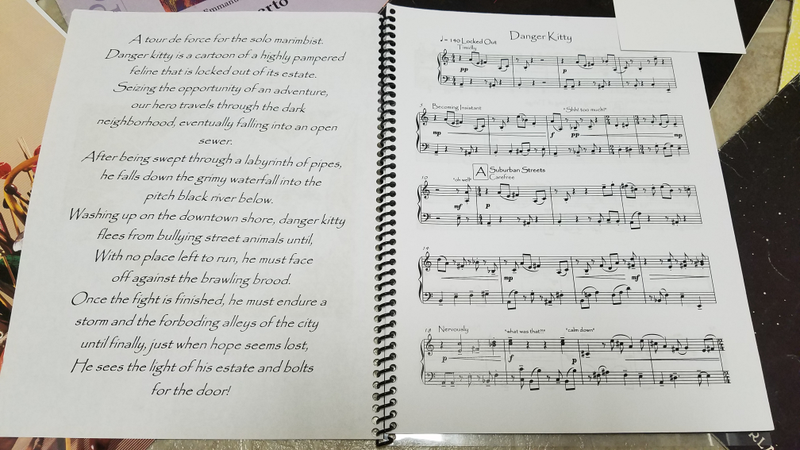 Emmanu
rto
A tour de force for the solo marimbist.
Danger kitty is a cartoon of a highly pampered
feline that is locked out of its estate.
Seizing the opportunity of an adventure,
our hero travels through the dark
neighborhood, eventually falling into an open
sewer.
After being swept through a labyrinth of pipes,
he falls down the grimy waterfall into the
pitch black river below.
Washing up on the downtown shore, danger kitty
flees from bullying street animals until,
With no place left to run, he must face
off against the brawling brood.
Once the fight is finished, he must endure a
storm and the forboding alleys of the city
until finally, just when hope seems lost,
He sees the light of his estate and bolts
for the door!
Danger Kitty
♩= 140 Locked Out
Timidly
pp
p
Becoming Insistant
"Shh! too much!"
mp
f
pp
mp
A Suburban Streets
Carefree
10
"oh well"
mf
p
14
mp
mf
18
Nervously
"what was that?!"
"calm down"
p
f
p